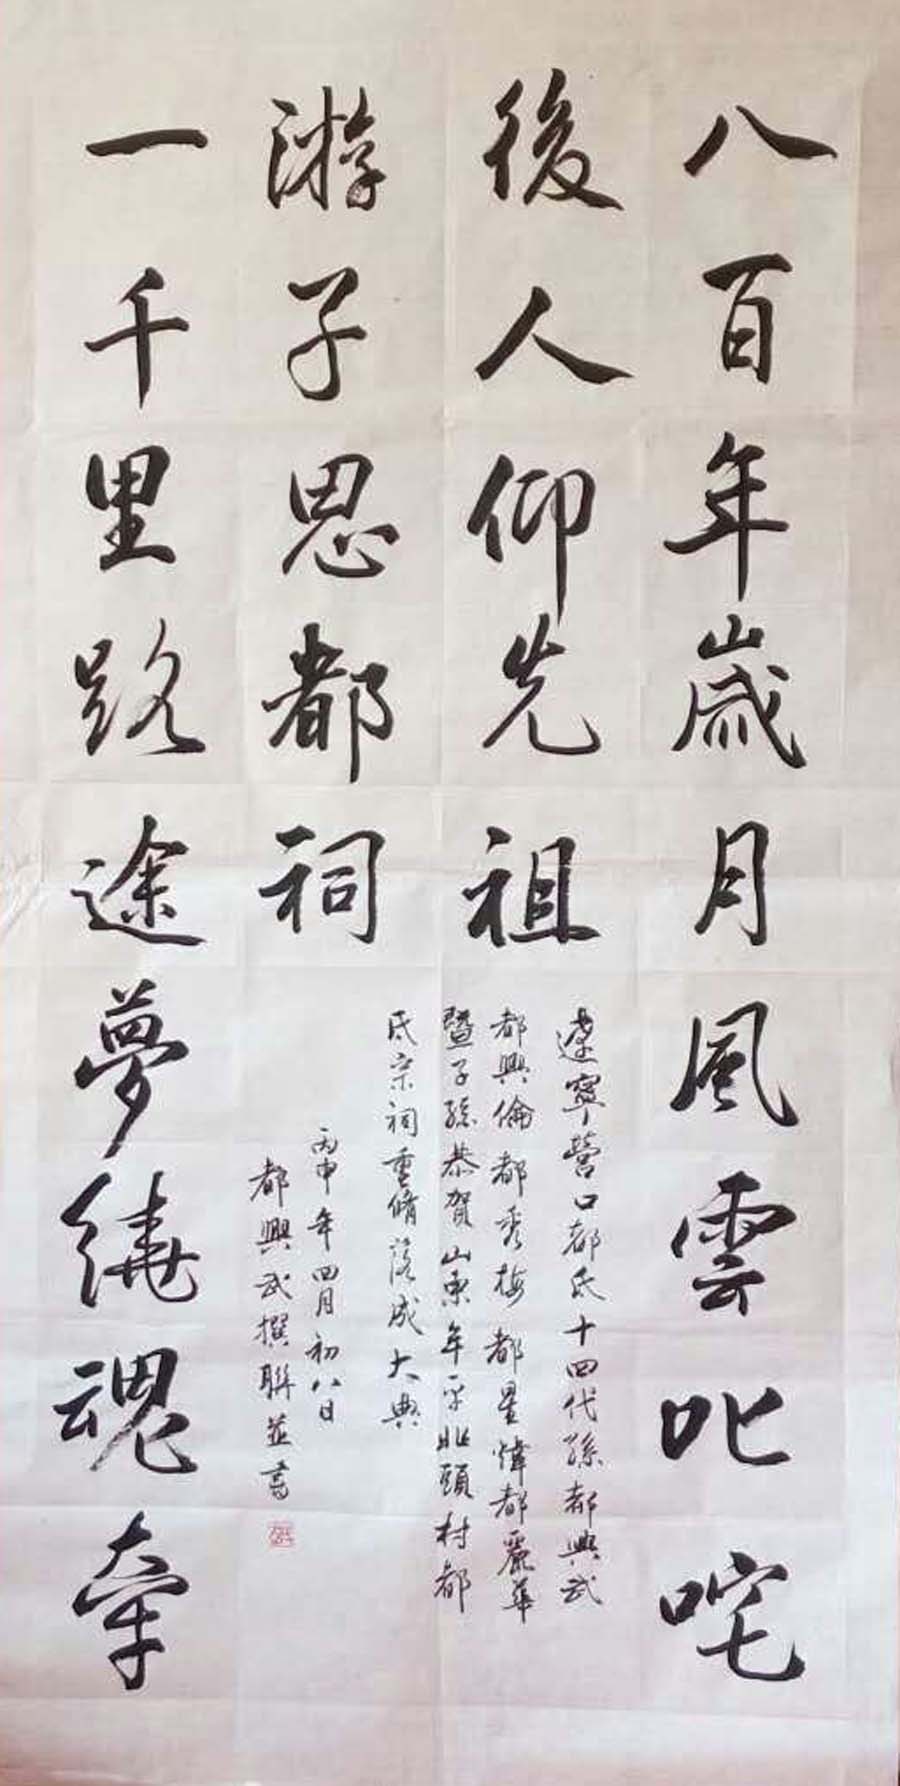 八百年歲月風雲叱咤
後人仰先祖
遼寧營口都氏十四代孫都興武
都興倫都秀梅都星煒都麗華
暨子孫恭賀山東牟平北頭村都
氏宗祠重脩落成大典
丙申年四月初八日
都興武撰聯並書
游子思都祠
一千里路途夢繞魂牽